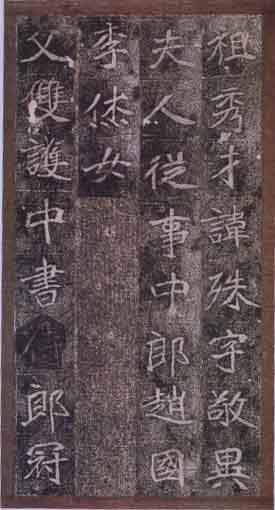 祖秀才諱殊字敬異
夫人從事中郎趙國
李休女
父雙護中書侍郎冠